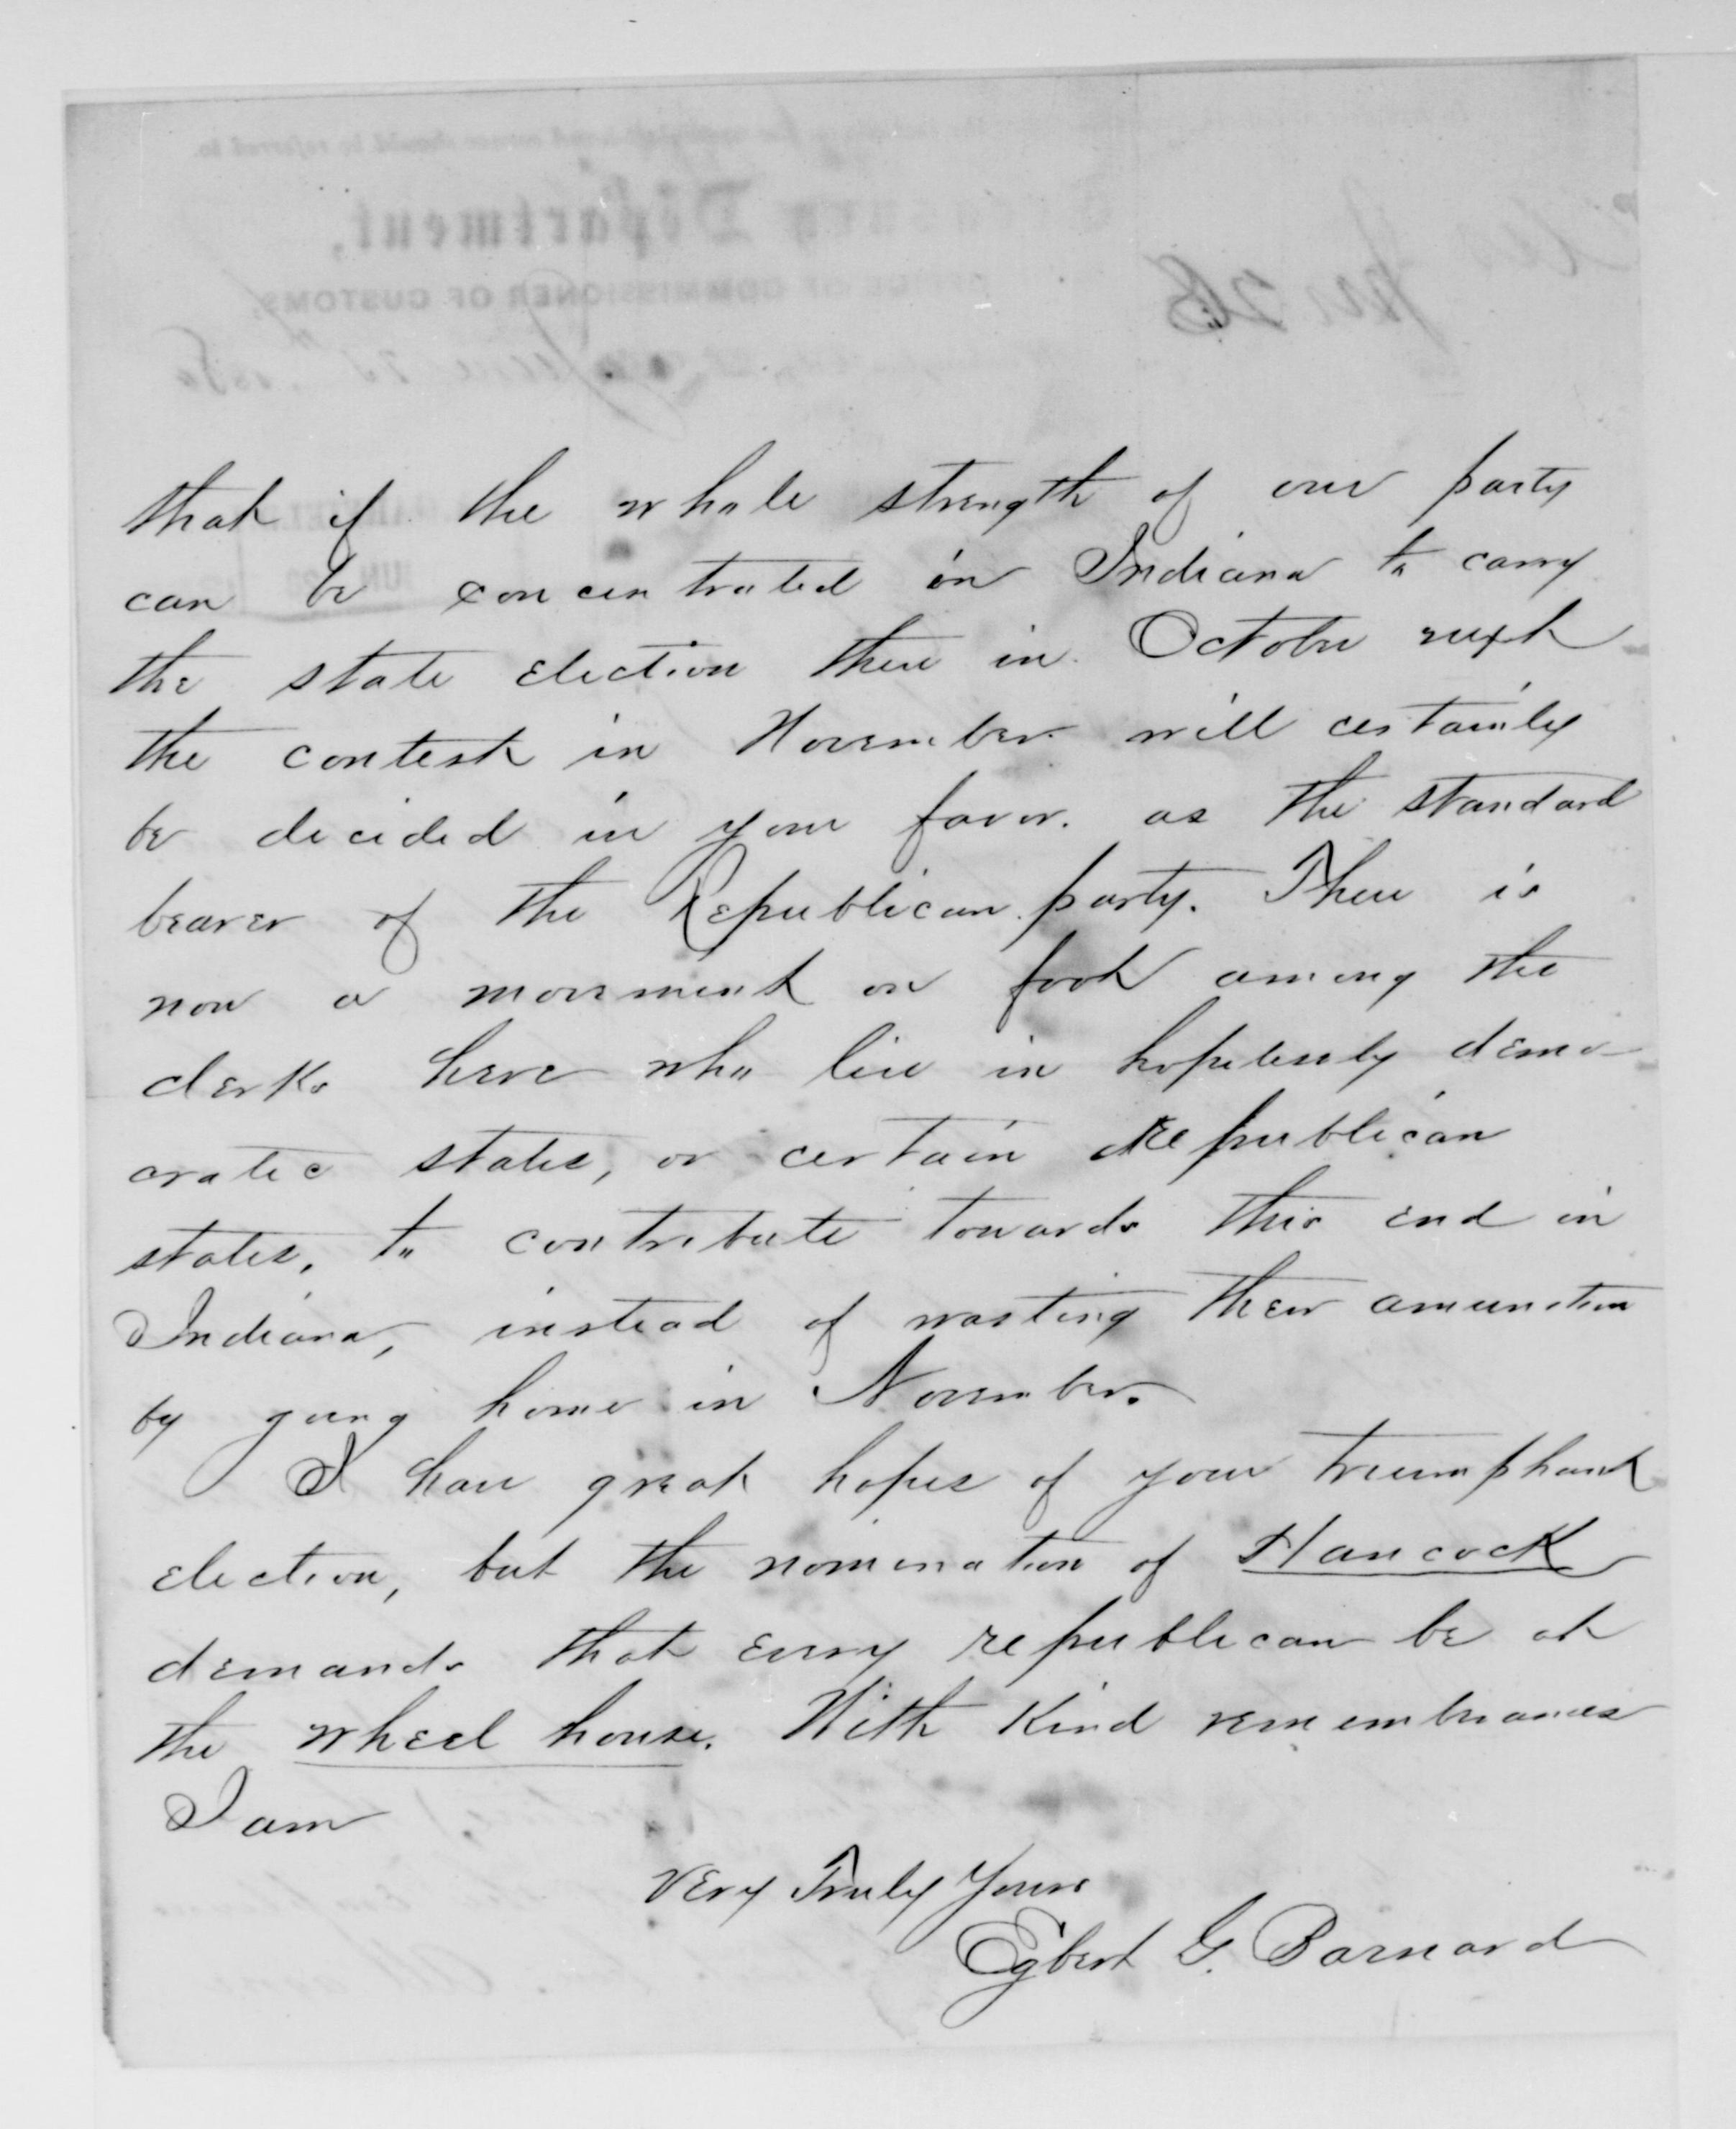 that if the whole strength of our party
can be concentrated in Indiana to carry
the state election there in October next
the contest in November will certainly
be decided in your favor. as the standard
bearer of the Republican party. There is
now a movement on foot among the
clerks here who live in hopelessly demo-
cratic states, or certain Republican
states, to contribute towards this end in
Indiana, instead of wasting their amunition
by going home in November.
I have great hopes of your triumphant
election, but the nomination of Hancock
demands that every republican be at
the wheel house. With kind remembrances
I am
Very Truly Yours
Egbert G. Barnard